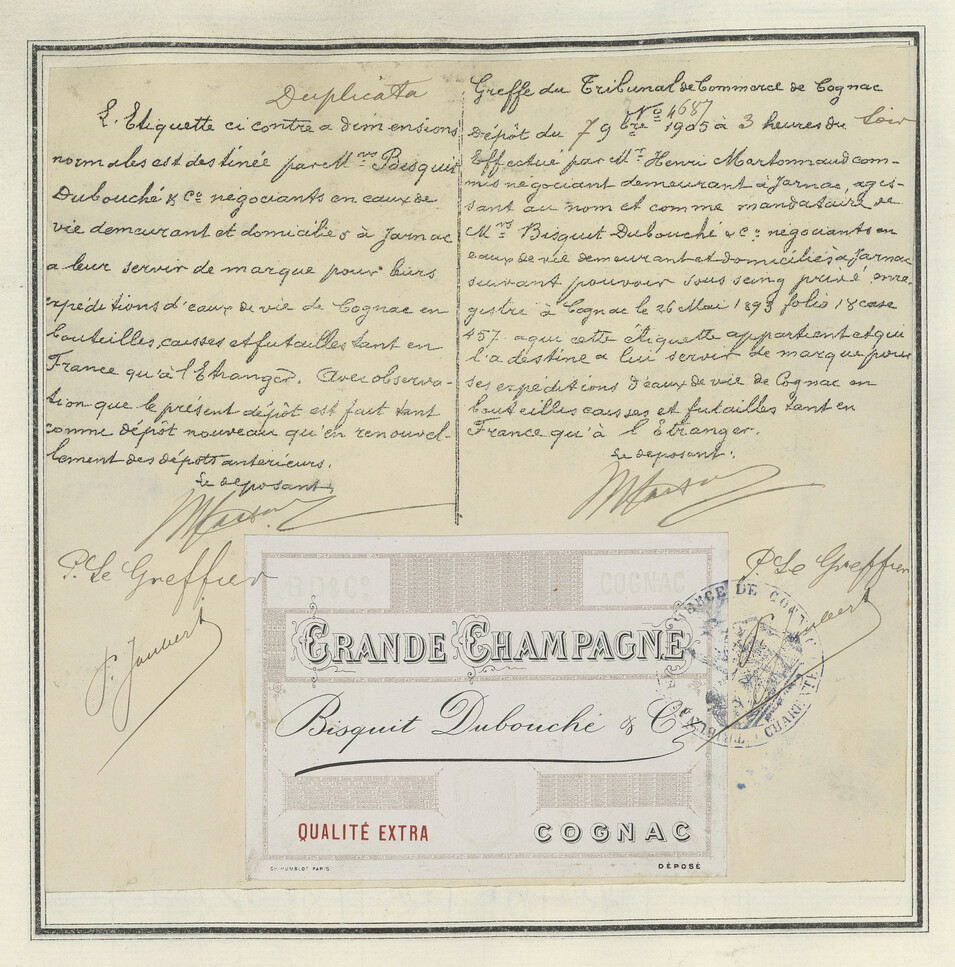 Duplicata
L'Etiquette ci contre a dimensions
normales est destinée par Mrs Bisquit
Dubouché & Co négociants en eaux de
vie demeurant et domiciliés à Jarnac
a leur servir de marque pour leurs
expéditions d'eaux de vie de Cognac en
bouteilles, caisses et futailles tant en
France qu'à l'Etranger. Avec observa-
tion que le présent dépôt est fait tant
comme dépôt nouveau qu'en renouvel-
lement des dépôts antérieurs.
Le deposant
P. Le Greffier
P. Jaubert
Greffe du Tribunal de Commerce de Cognac
No 4687
Dépôt du 7 9bre 1905 à 3 heures du Soir
Effectué par Mr Henri Martonnaud com-
mis négociant demeurant à Jarnac, agis-
sant au nom et comme mandataire de
Mrs Bisquit Dubouché & Co négociants en
eaux de vie demeurant et domiciliés à Jarnac
suivant pouvoir sous seing privé enre-
gistré à Cognac le 26 Mai 1893 folio 18 case
457. a qui cette étiquette appartient et qui
l'a destine a lui servir de marque pour
ses expéditions d'eaux de vie de Cognac en
bouteilles caisses et futailles tant en
France qu'à l'Etranger.
Le deposant.
P. Le Greffier
Jaubert
BD&Co
COGNAC
GRANDE CHAMPAGNE
Bisquit Dubouché & Co
QUALITÉ EXTRA
COGNAC
CH HUMBLOT PARIS
DÉPOSÉ
DE COGNAC
CHARENTE